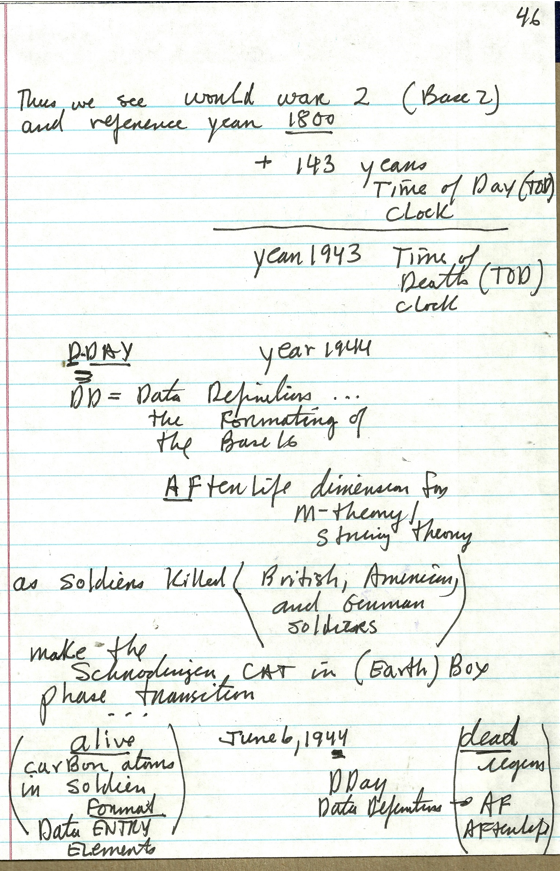 46
Thus we see would war 2 (Base 2)
and reference year 1800
+ 143 years
Time of Day (TOD)
clock
year 1943 Time of
Death (TOD)
clock
D-DAY year 1944
DD = Data Definitions ...
the Formating of
the Base 16
AFterLife dimension for
M-theory/
string theory
as soldiers killed (British, American,
and German
soldiers)
make the
Schrodinger CAT in (Earth) Box
phase transition
...
(alive June 6, 1944 (dead
carbon atoms
in soldier DDay
Format Data Definitions → AF
Data ENTRY AFterlife)
Elements)